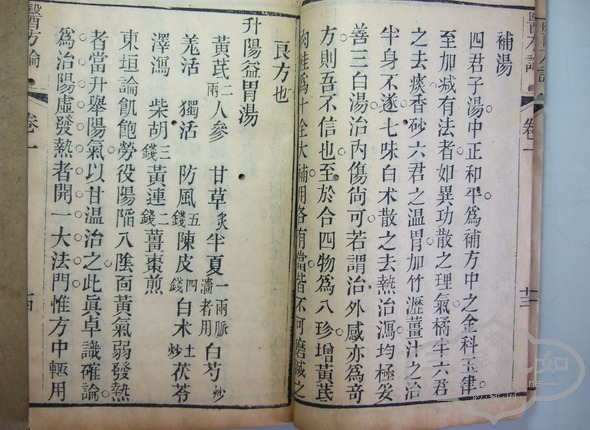 卷一
十三
補湯
四君子湯中正和平為補方中之金科玉律
至加減有法者如異功散之理氣橘半六君
之去痰香砂六君之溫胃加竹瀝薑汁之治
半身不遂七味白术散之去熱治瀉均極妥
善三白湯治內傷尚可若謂治外感亦為奇
方則吾不信也至於合四物為八珍增黃芪
肉桂為十全大補用各有當皆不可磨滅之
良方也
升陽益胃湯
黃芪二兩人參 甘草炙半夏一兩脈濇者用白芍炒
羌活 獨活 防風五錢陳皮四錢白术土炒茯苓
澤瀉 柴胡三錢黃連二錢薑棗煎
東垣論飢飽勞役陽陷入陰面黃氣弱發熱
者當升舉陽氣以甘溫治之此眞卓識確論
為治陽虛發熱者開一大法門惟方中輒用
醫方論
卷一